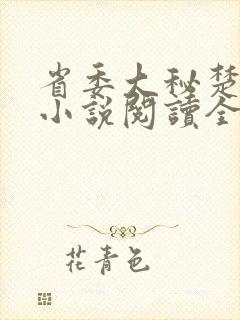 省委大秘楚
小說閱讀全
花青色